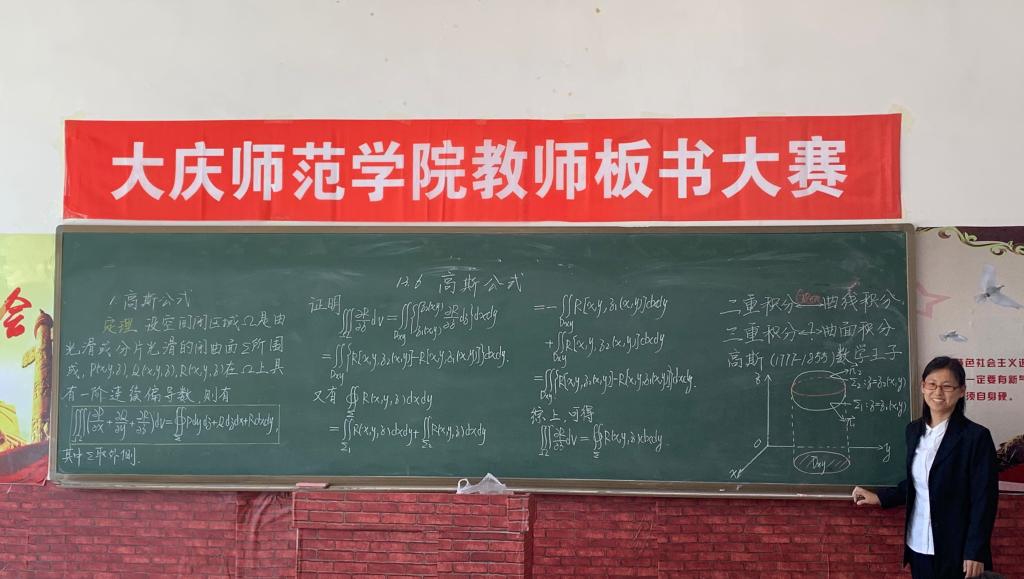 大庆师范学院教师板书大赛
12.6 高斯公式
1. 高斯公式
定理 设空间闭区域Ω是由
光滑或分片光滑的闭曲面Σ所围
成, P(x,y,z), Q(x,y,z), R(x,y,z)在Ω上具
有一阶连续偏导数, 则有
∭_Ω(∂P/∂x+∂Q/∂y+∂R/∂z)dv=∯_Σ Pdydz+Qdzdx+Rdxdy
其中Σ取外侧.
证明
∭_Ω ∂R/∂z dv=∬_Dxy{∫_{z₁(x,y)}^{z₂(x,y)} ∂R/∂z dz}dxdy
=∬_Dxy{R[x,y,z₂(x,y)]-R[x,y,z₁(x,y)]}dxdy.
又有 ∯_Σ R(x,y,z)dxdy
=∬_Σ₁ R(x,y,z)dxdy+∬_Σ₂ R(x,y,z)dxdy
=-∬_Dxy R[x,y,z₁(x,y)]dxdy
+∬_Dxy R[x,y,z₂(x,y)]dxdy
=∬_Dxy{R[x,y,z₂(x,y)]-R[x,y,z₁(x,y)]}dxdy.
综上,可得
∭_Ω ∂R/∂z dv=∯_Σ R(x,y,z)dxdy.
二重积分 曲线积分,
三重积分 曲面积分
高斯(1777-1855)数学王子
z
Σ₂: z=z₂(x,y)
Σ₁: z=z₁(x,y)
o
y
Dxy
x
会
特色社会主义
一定要有新
须自身硬。